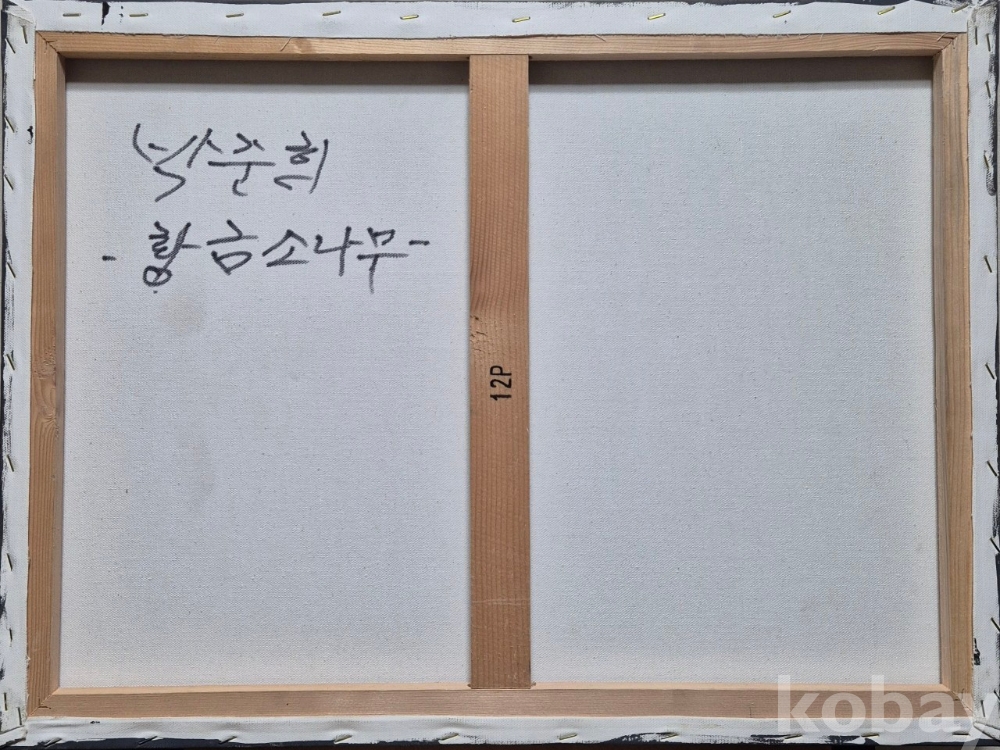 박준희
- 황금소나무 -
12P
kobay